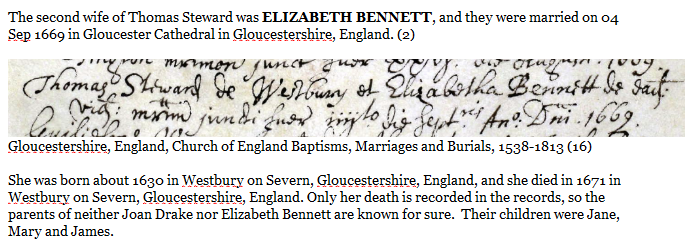 The second wife of Thomas Steward was ELIZABETH BENNETT, and they were married on 04
Sep 1669 in Gloucester Cathedral in Gloucestershire, England. (2)
Thomas Steward de Westbury et Elizabetha Bennett de ead:
vid: mrim juncti fuer iiijto die Septris Ano: Dni 1669.
Gloucestershire, England, Church of England Baptisms, Marriages and Burials, 1538-1813 (16)
She was born about 1630 in Westbury on Severn, Gloucestershire, England, and she died in 1671 in
Westbury on Severn, Gloucestershire, England. Only her death is recorded in the records, so the
parents of neither Joan Drake nor Elizabeth Bennett are known for sure.  Their children were Jane,
Mary and James.